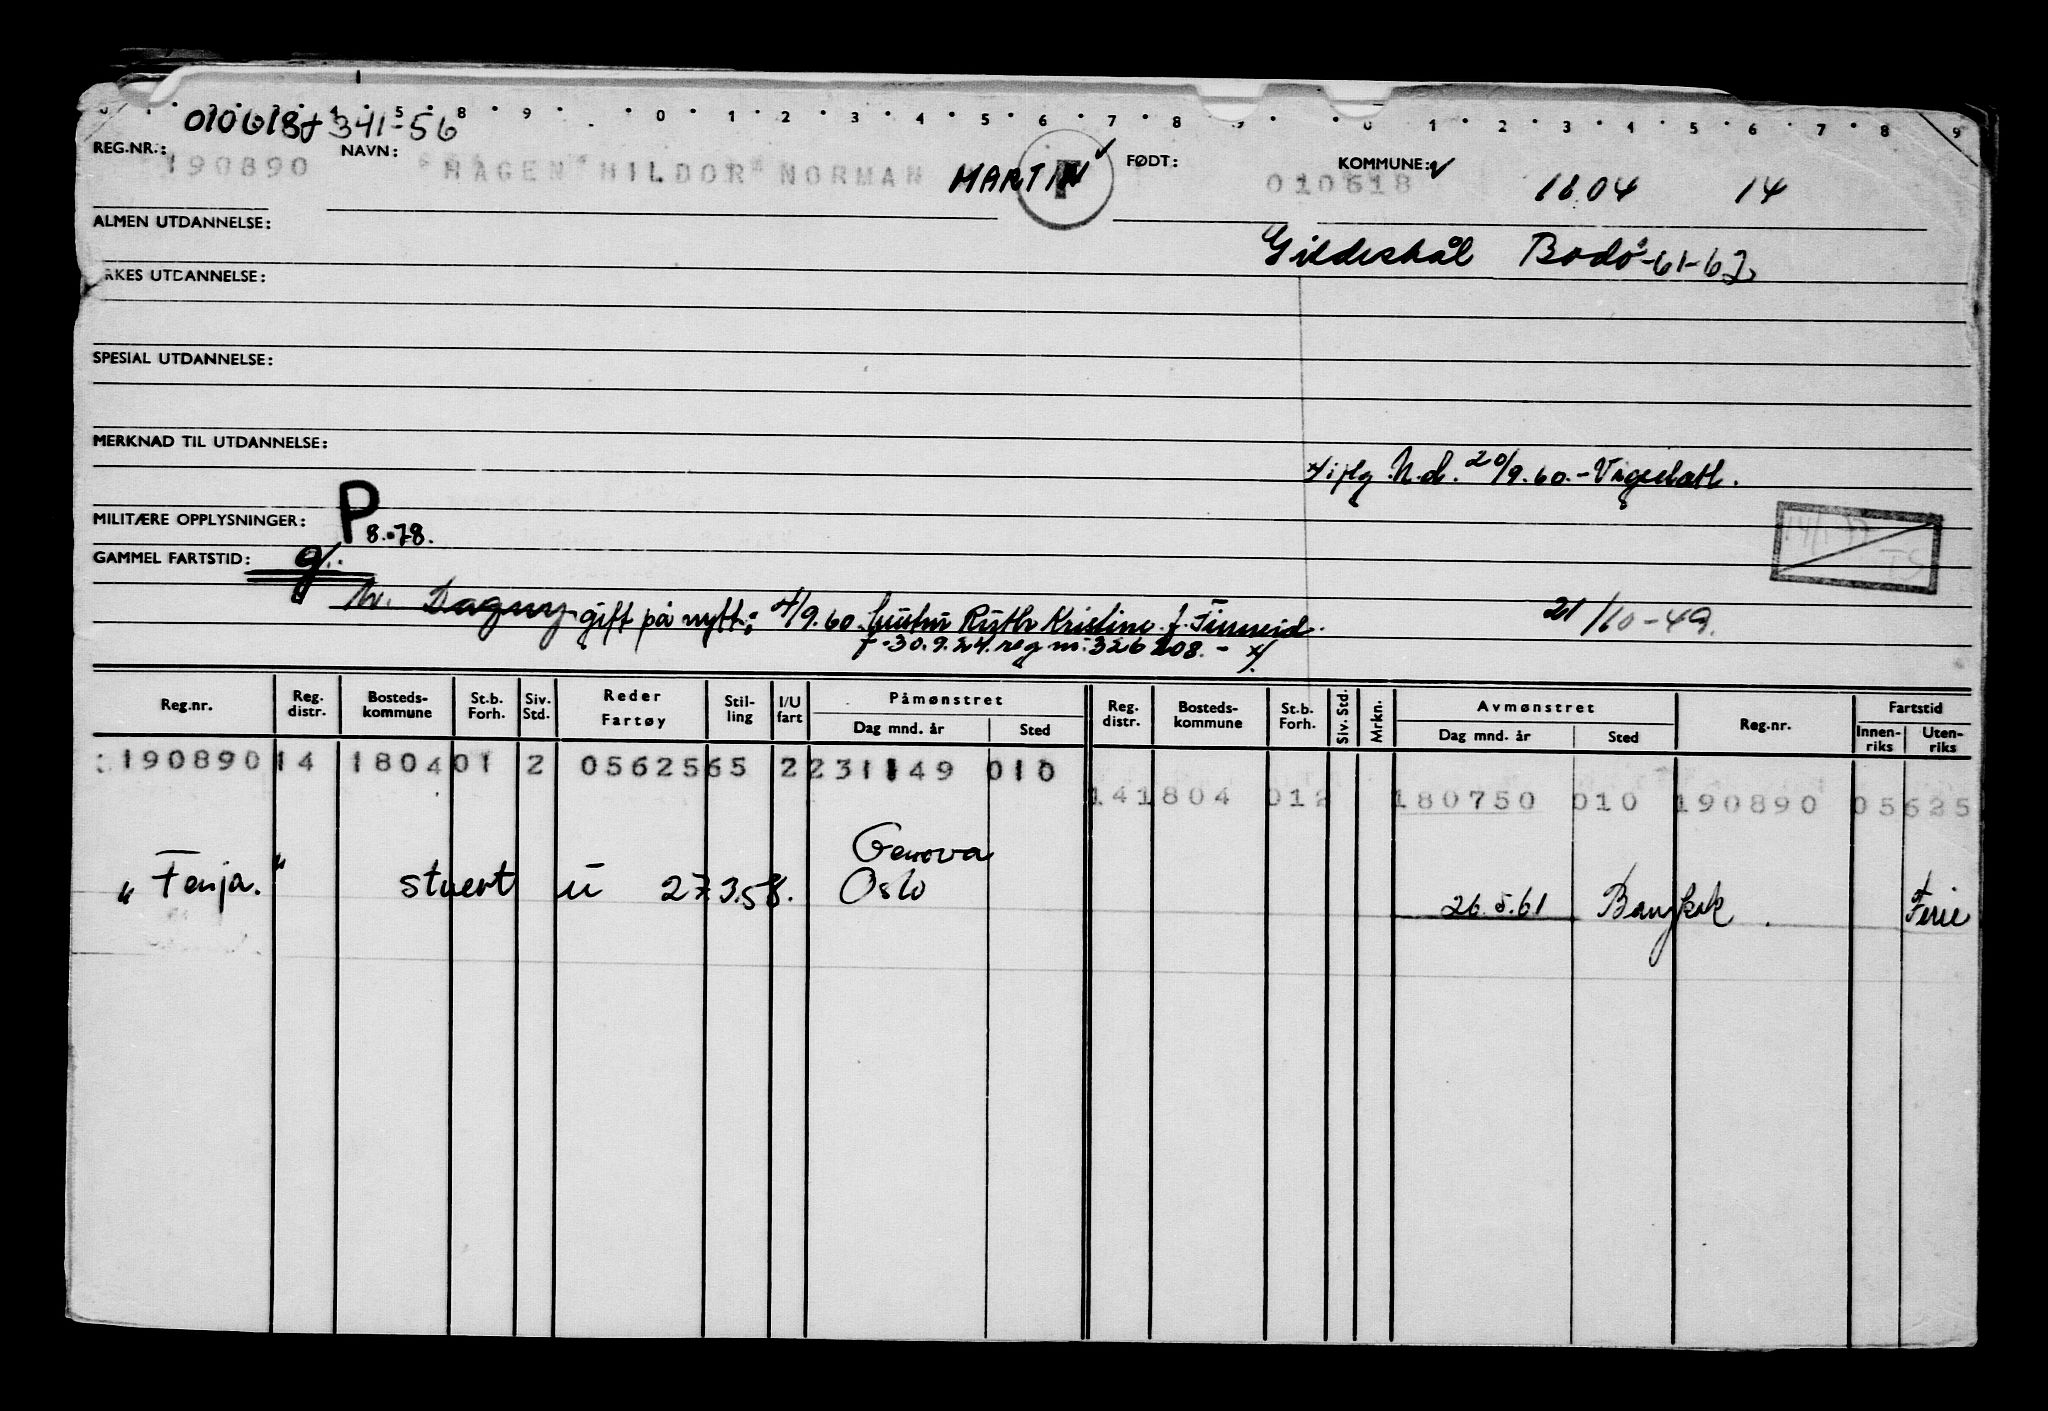 0 5 8 9 0 1 2 3 4 5 6 7 8 9 0 1 2 3 4 5 6 7 8 9
010618 341-56
REG.NR.: NAVN: FØDT: KOMMUNE:
190890 HAGEN HILDOR NORMAN MARTIN 010618 1804 14
ALMEN UTDANNELSE:
Gildeskål Bodø -61-62
RKES UTDANNELSE:
SPESIAL UTDANNELSE:
MERKNAD TIL UTDANNELSE:
x/ iflg N.d. 20/9.60.-
P
MILITÆRE OPPLYSNINGER:
8.-78.
GAMMEL FARTSTID: g.
TS
Dagny gift på nytt: 4/9.60. hustru Ruth Kristine f. Finneid.
21/10-49.
f-30.9.24. reg nr: 326208. - x/
Reg.nr. Reg. distr. Bosteds-kommune St.b. Forh. Siv. Std. Reder Fartøy Stil-ling I/U fart Påmønstret Dag mnd. år Sted Reg. distr. Bosteds-kommune St.b. Forh. Siv. Std. Mrkn. Avmønstret Dag mnd. år Sted Reg.nr. Fartstid Innen-riks Uten-riks
190890 14 1804 01 2 05625 65 2 231149 010
14 1804 01 2 180750 010 190890 05625
Genova
"Fenja." stuert u 27.3.58. Oslo 26.5.61 Bangkok. Ferie